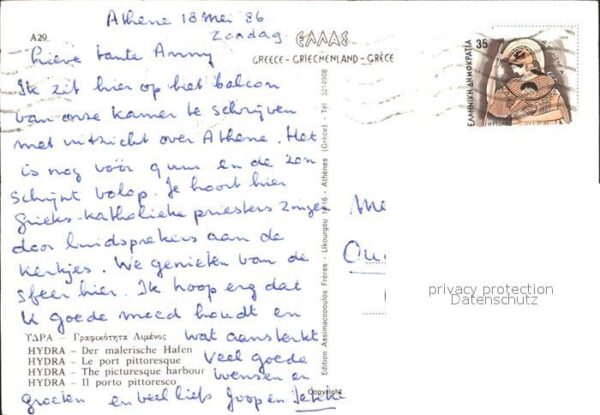 Athene 18 Mei '86
zondag
A29
ΕΛΛΑΣ
GREECE - GRIECHENLAND - GRÈCE
Lieve tante Anny
Ik zit hier op het balcon
van onze kamer te schrijven
met uitzicht over Athene. Het
is nog vóór 9 uur en de zon
schijnt volop. Je hoort hier
Grieks-katholieke priesters zingen
door luidsprekers aan de
kerkjes. We genieten van de
sfeer hier. Ik hoop erg dat
U goede moed houdt en
wat aansterkt
Veel goede
wensen en
groeten en veel liefs Joop en
ΥΔΡΑ – Γραφικότητα Λιμένος
HYDRA – Der malerische Hafen
HYDRA – Le port pittoresque
HYDRA – The picturesque harbour
HYDRA – Il porto pittoresco
Edition Assimacopoulos Frères - Likourgou 14-16 - Athènes (Grèce) - Tel. 3214908
Copyright
35
ΕΛΛΗΝΙΚΗ ΔΗΜΟΚΡΑΤΙΑ
Me
Ou
privacy protection
Datenschutz